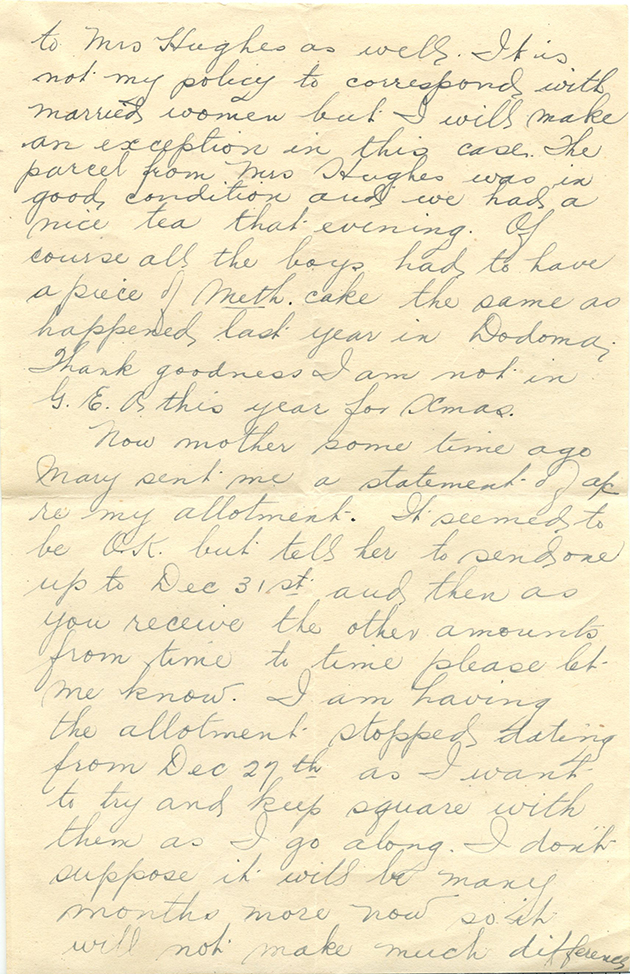 to Mrs Hughes as well. It is
not my policy to correspond with
married women but I will make
an exception in this case. The
parcel from Mrs Hughes was in
good condition and we had a
nice tea that evening. Of
course all the boys had to have
a piece of Meth. cake the same as
happened last year in Dodoma.
Thank goodness I am not in
G. E. A this year for Xmas.
Now mother some time ago
Mary sent me a statement of a/c
re my allotment. It seemed to
be O.K. but tell her to send one
up to Dec 31st and then as
you receive the other amounts
from time to time please let
me know. I am having
the allotment stopped dating
from Dec 27th as I want
to try and keep square with
them as I go along. I don't
suppose it will be many
months more now so it
will not make much difference